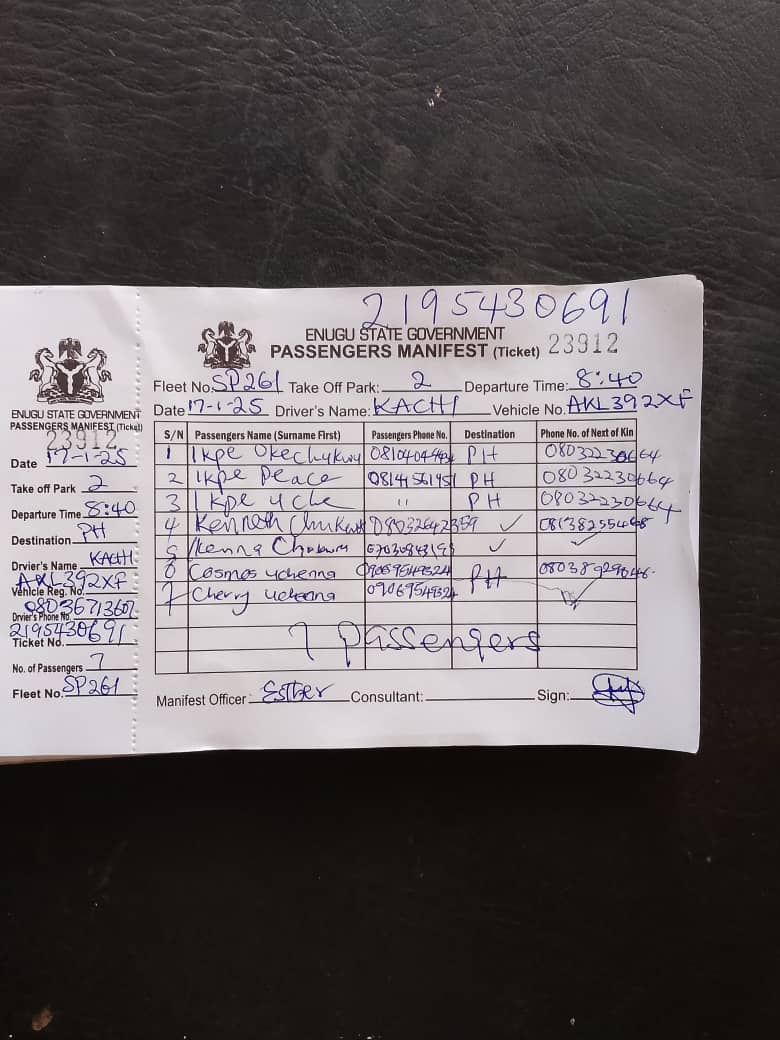 ENUGU STATE GOVERNMENT
PASSENGERS MANIFEST (Ticket)
23912
Date 17-1-25
Take off Park 2
Departure Time 8:40
Destination PH
Drvier's Name KACHI
AKL392XF
Vehicle Reg. No.
08036713607
Drvier's Phone No.
2195430691
Ticket No.
No. of Passengers 7
Fleet No. SP261
2195430691
ENUGU STATE GOVERNMENT
PASSENGERS MANIFEST (Ticket) 23912
Fleet No. SP261 Take Off Park: 2 Departure Time: 8:40
Date 17-1-25 Driver's Name: KACHI Vehicle No. AKL392XF
S/N Passengers Name (Surname First) Passengers Phone No. Destination Phone No. of Next of Kin
1 Ikpe Okechukwu PH 08032230664
2 Ikpe Peace 08141561451 PH 08032230664
3 Ikpe Uche " PH 08032230664
4 Kenneth 08032642359 ✓
5 Ikenna ✓ ✓
6 Cosmos Uchenna 09069549324 PH
7 Cherry Uchenna 09069549324
7 Passengers
Manifest Officer: Esther Consultant: Sign: